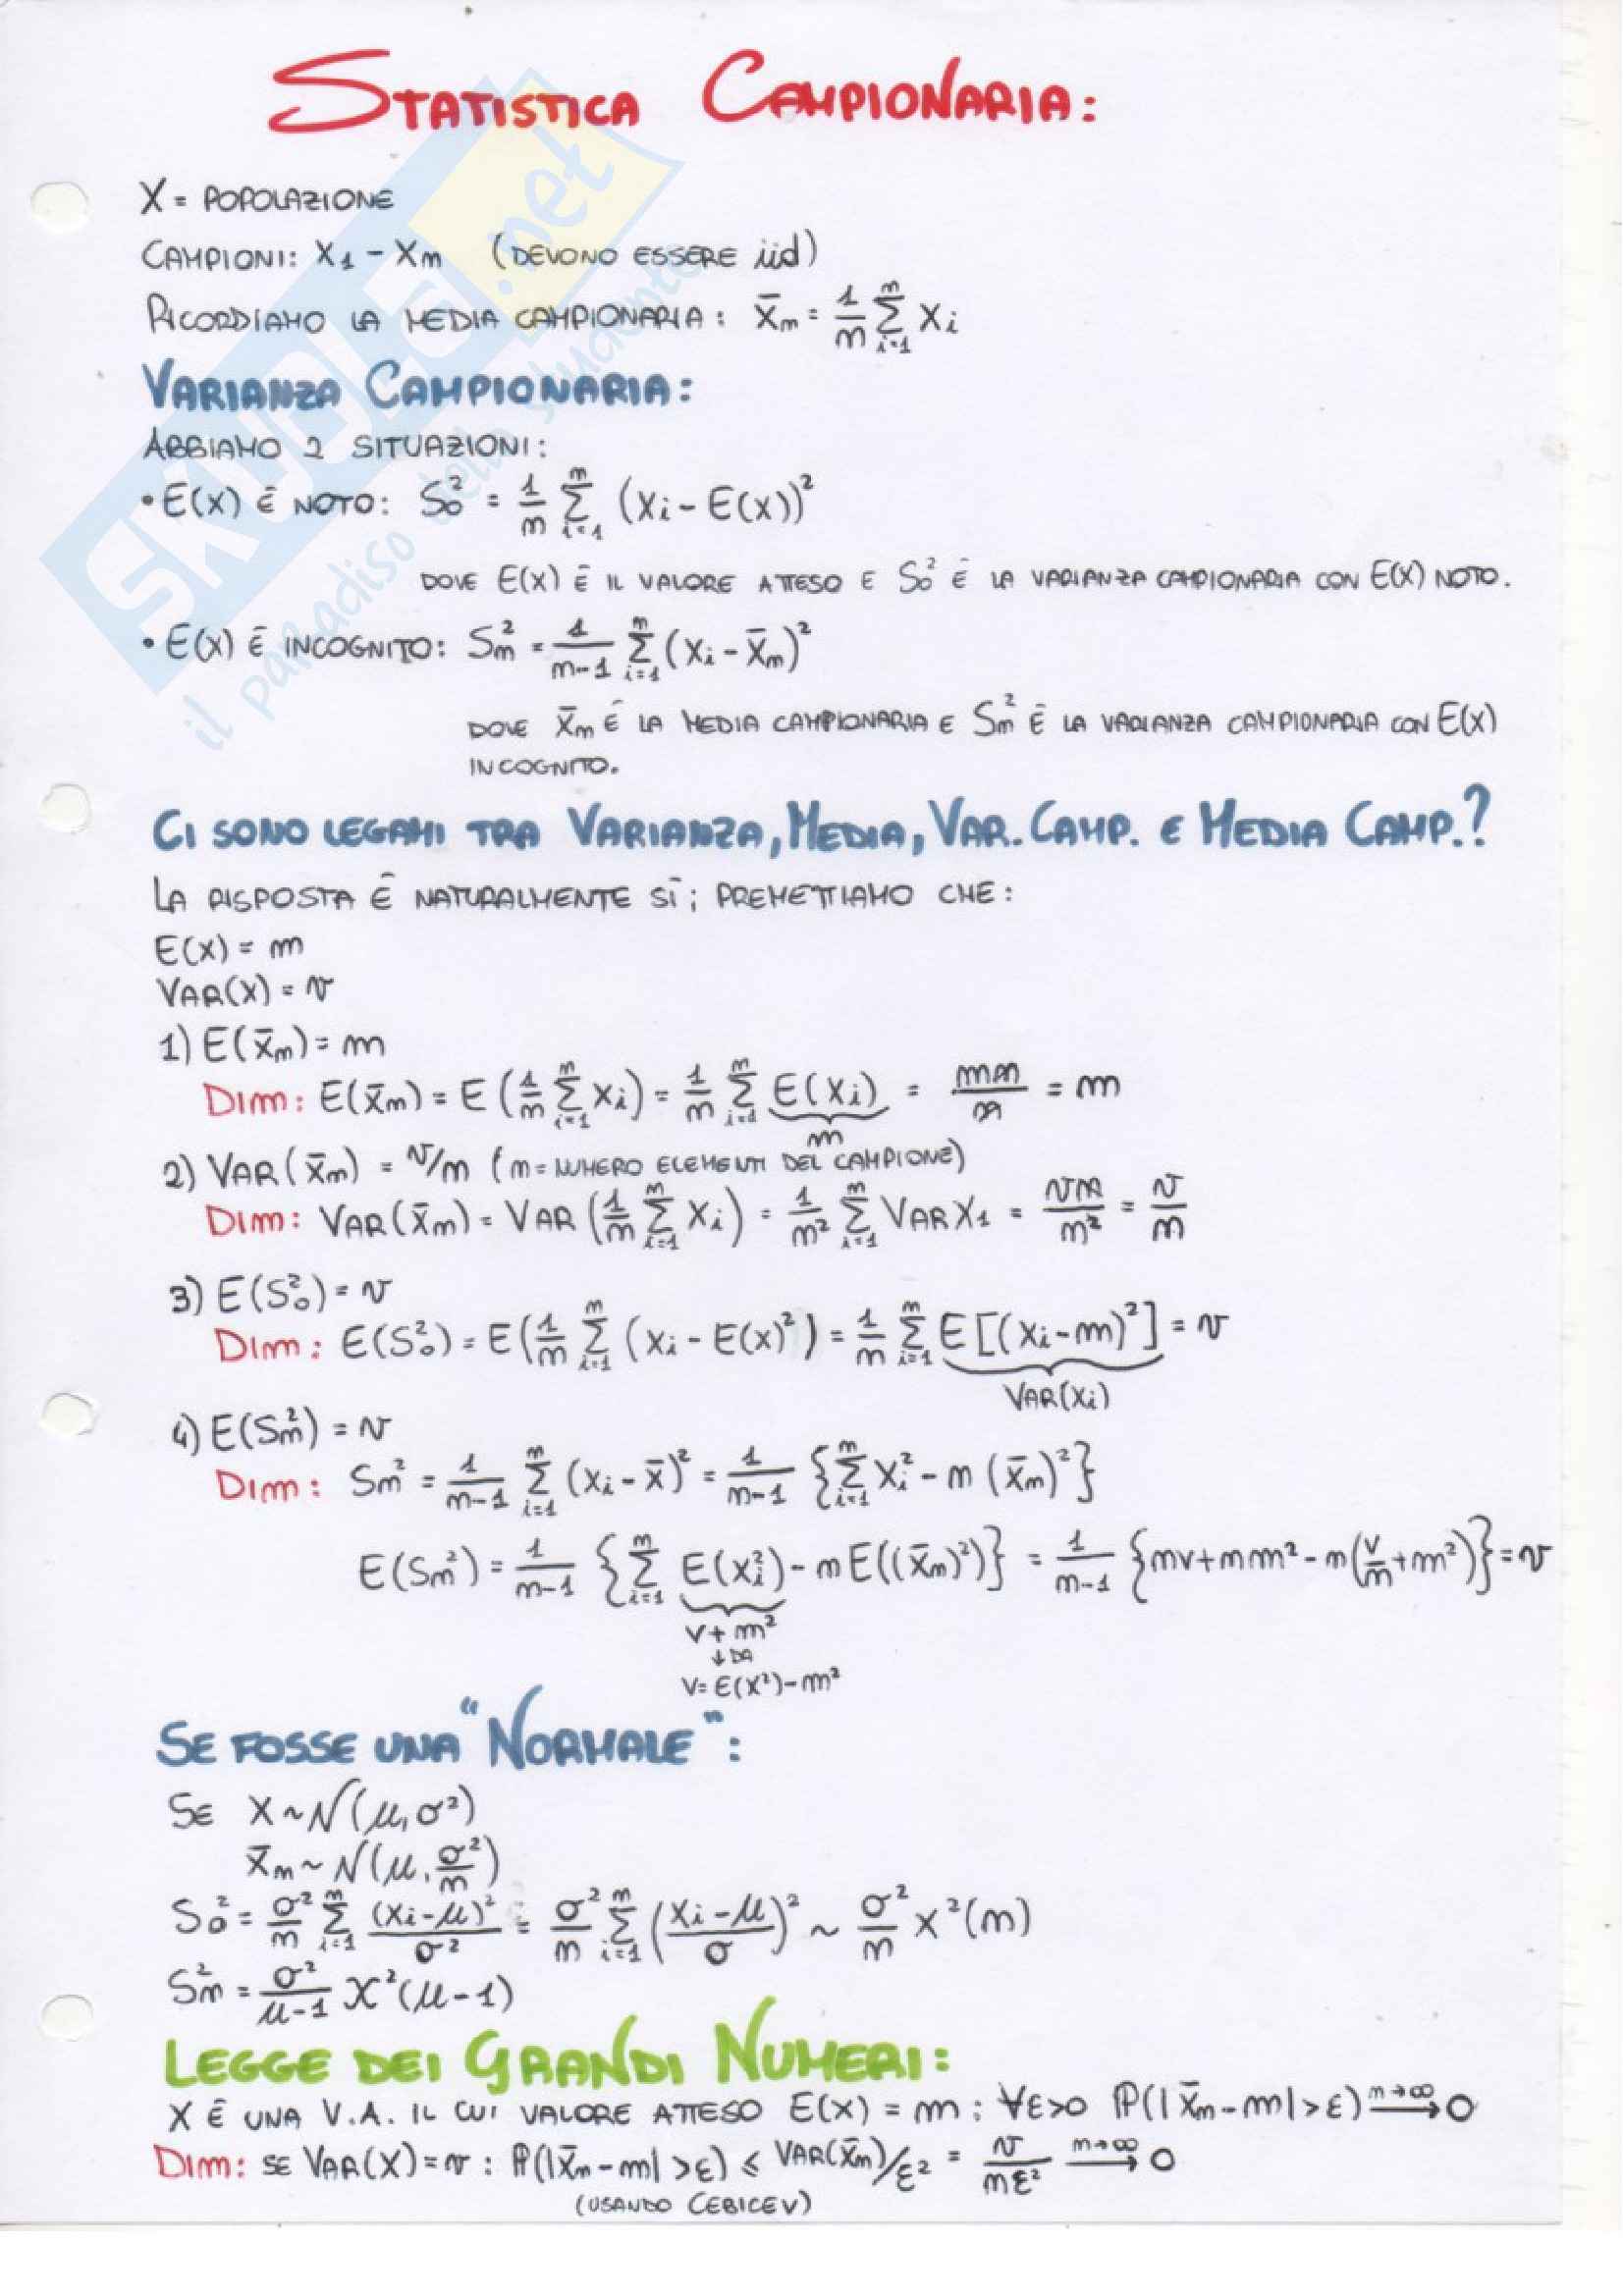 STATISTICA CAMPIONARIA:
X = POPOLAZIONE
CAMPIONI: X₁ - Xₙ (DEVONO ESSERE iid)
RICORDIAMO LA MEDIA CAMPIONARIA: X̄ₙ = 1/n Σᵢ₌₁ⁿ Xᵢ
VARIANZA CAMPIONARIA:
ABBIAMO 2 SITUAZIONI:
• E(X) È NOTO: S₀² = 1/n Σᵢ₌₁ⁿ (Xᵢ - E(X))²
DOVE E(X) È IL VALORE ATTESO E S₀² È LA VARIANZA CAMPIONARIA CON E(X) NOTO.
• E(X) È INCOGNITO: Sₙ² = 1/(n-1) Σᵢ₌₁ⁿ (Xᵢ - X̄ₙ)²
DOVE X̄ₙ È LA MEDIA CAMPIONARIA E Sₙ² È LA VARIANZA CAMPIONARIA CON E(X)
INCOGNITO.
CI SONO LEGAMI TRA VARIANZA, MEDIA, VAR. CAMP. E MEDIA CAMP.?
LA RISPOSTA È NATURALMENTE SÌ; PREMETTIAMO CHE:
E(X) = m
VAR(X) = v
1) E(X̄ₙ) = m
DIM: E(X̄ₙ) = E(1/n Σᵢ₌₁ⁿ Xᵢ) = 1/n Σᵢ₌₁ⁿ E(Xᵢ) = mn/n = m
m
2) VAR(X̄ₙ) = v/n (n = NUMERO ELEMENTI DEL CAMPIONE)
DIM: VAR(X̄ₙ) = VAR(1/n Σᵢ₌₁ⁿ Xᵢ) = 1/n² Σᵢ₌₁ⁿ VAR X₁ = vn/n² = v/n
3) E(S₀²) = v
DIM: E(S₀²) = E(1/n Σᵢ₌₁ⁿ (Xᵢ - E(X)²) = 1/n Σᵢ₌₁ⁿ E[(Xᵢ - m)²] = v
VAR(Xᵢ)
4) E(Sₙ²) = v
DIM: Sₙ² = 1/(n-1) Σᵢ₌₁ⁿ (Xᵢ - X̄)² = 1/(n-1) {Σᵢ₌₁ⁿ Xᵢ² - n (X̄ₙ)²}
E(Sₙ²) = 1/(n-1) {Σᵢ₌₁ⁿ E(Xᵢ²) - n E((X̄ₙ)²)} = 1/(n-1) {nv + nm² - n(v/n + m²)} = v
v + m²
↓ DA
v = E(X²) - m²
SE FOSSE UNA "NORMALE":
SE X ~ N(μ, σ²)
X̄ₙ ~ N(μ, σ²/n)
S₀² = σ²/n Σᵢ₌₁ⁿ (Xᵢ - μ)²/σ² = σ²/n Σᵢ₌₁ⁿ ((Xᵢ - μ)/σ)² ~ σ²/n X²(n)
Sₙ² = σ²/(μ-1) X²(μ-1)
LEGGE DEI GRANDI NUMERI:
X È UNA V.A. IL CUI VALORE ATTESO E(X) = m : ∀ε>0 ℙ(|X̄ₙ - m| > ε) n→∞→ 0
DIM: SE VAR(X) = v : ℙ(|X̄ₙ - m| > ε) ≤ VAR(X̄ₙ)/ε² = v/nε² n→∞→ 0
(USANDO CEBICEV)
SKUOLA.net
il paradiso dello studente